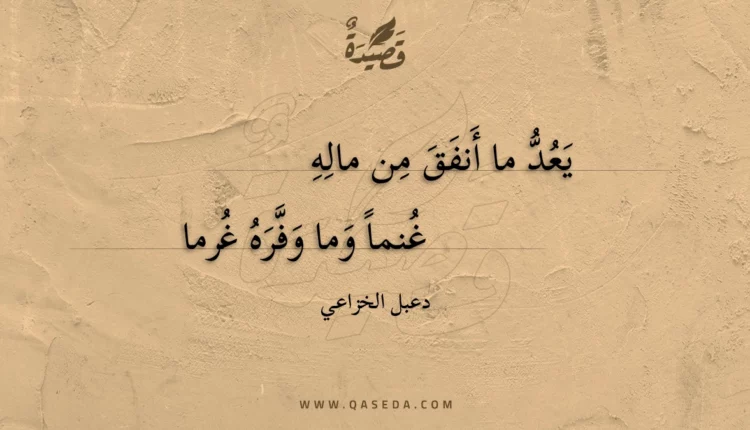 قَصِيْدَةٌ
يَعُدُّ ما أَنفَقَ مِن مالِهِ
غُنماً وَما وَفَّرَهُ غُرما
دعبل الخزاعي
WWW.QASEDA.COM